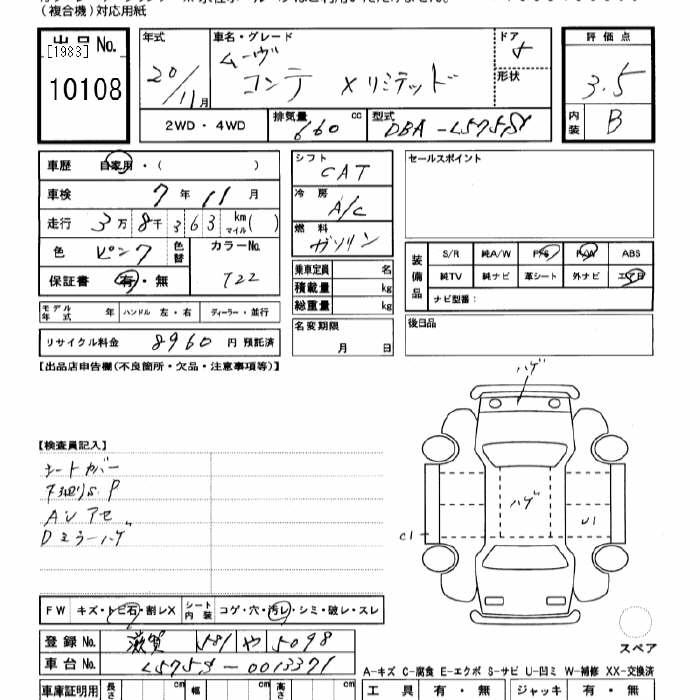 (複合機)対応用紙
出品No.
[1983]
10108
年式 20/11月
車名・グレード ムーヴ コンテ Xリミテッド
ドア 5
形状
評価点 3.5
内装 B
2WD・4WD
排気量 660 cc
型式 DBA-L575S
車歴 自家用・( )
車検 7年11月
走行 3万8千363 km マイル( )
色 ピンク 色替 カラーNo. T22
保証書 有・無
モデル年式 年 ハンドル 左・右 ディーラー・並行
リサイクル料金 8960円 預託済
シフト CAT
冷房 A/C
燃料 ガソリン
乗車定員 名
積載量 kg
総重量 kg
名変期限 月 日
セールスポイント
装備品 S/R 純A/W P/S P/W ABS
純TV 純ナビ 革シート 外ナビ エアB
ナビ型番:
後日品
【出品店申告欄(不良箇所・欠品・注意事項等)】
【検査員記入】
シートカバー
AUアセ
Dミラーハゲ
ハゲ
ハゲ
U1
C1
スペア
FW キズ・トビ石・割レX シート内装 コゲ・穴・汚レ・シミ・破レ・スレ
登録No. 滋賀 581 や 5098
車台No. L575S-0013371
A-キズ C-腐食 E-エクボ S-サビ U-凹ミ W-補修 XX-交換済
車庫証明用 長さ cm 幅 cm 高さ cm
工具 有・無 ジャッキ 有・無